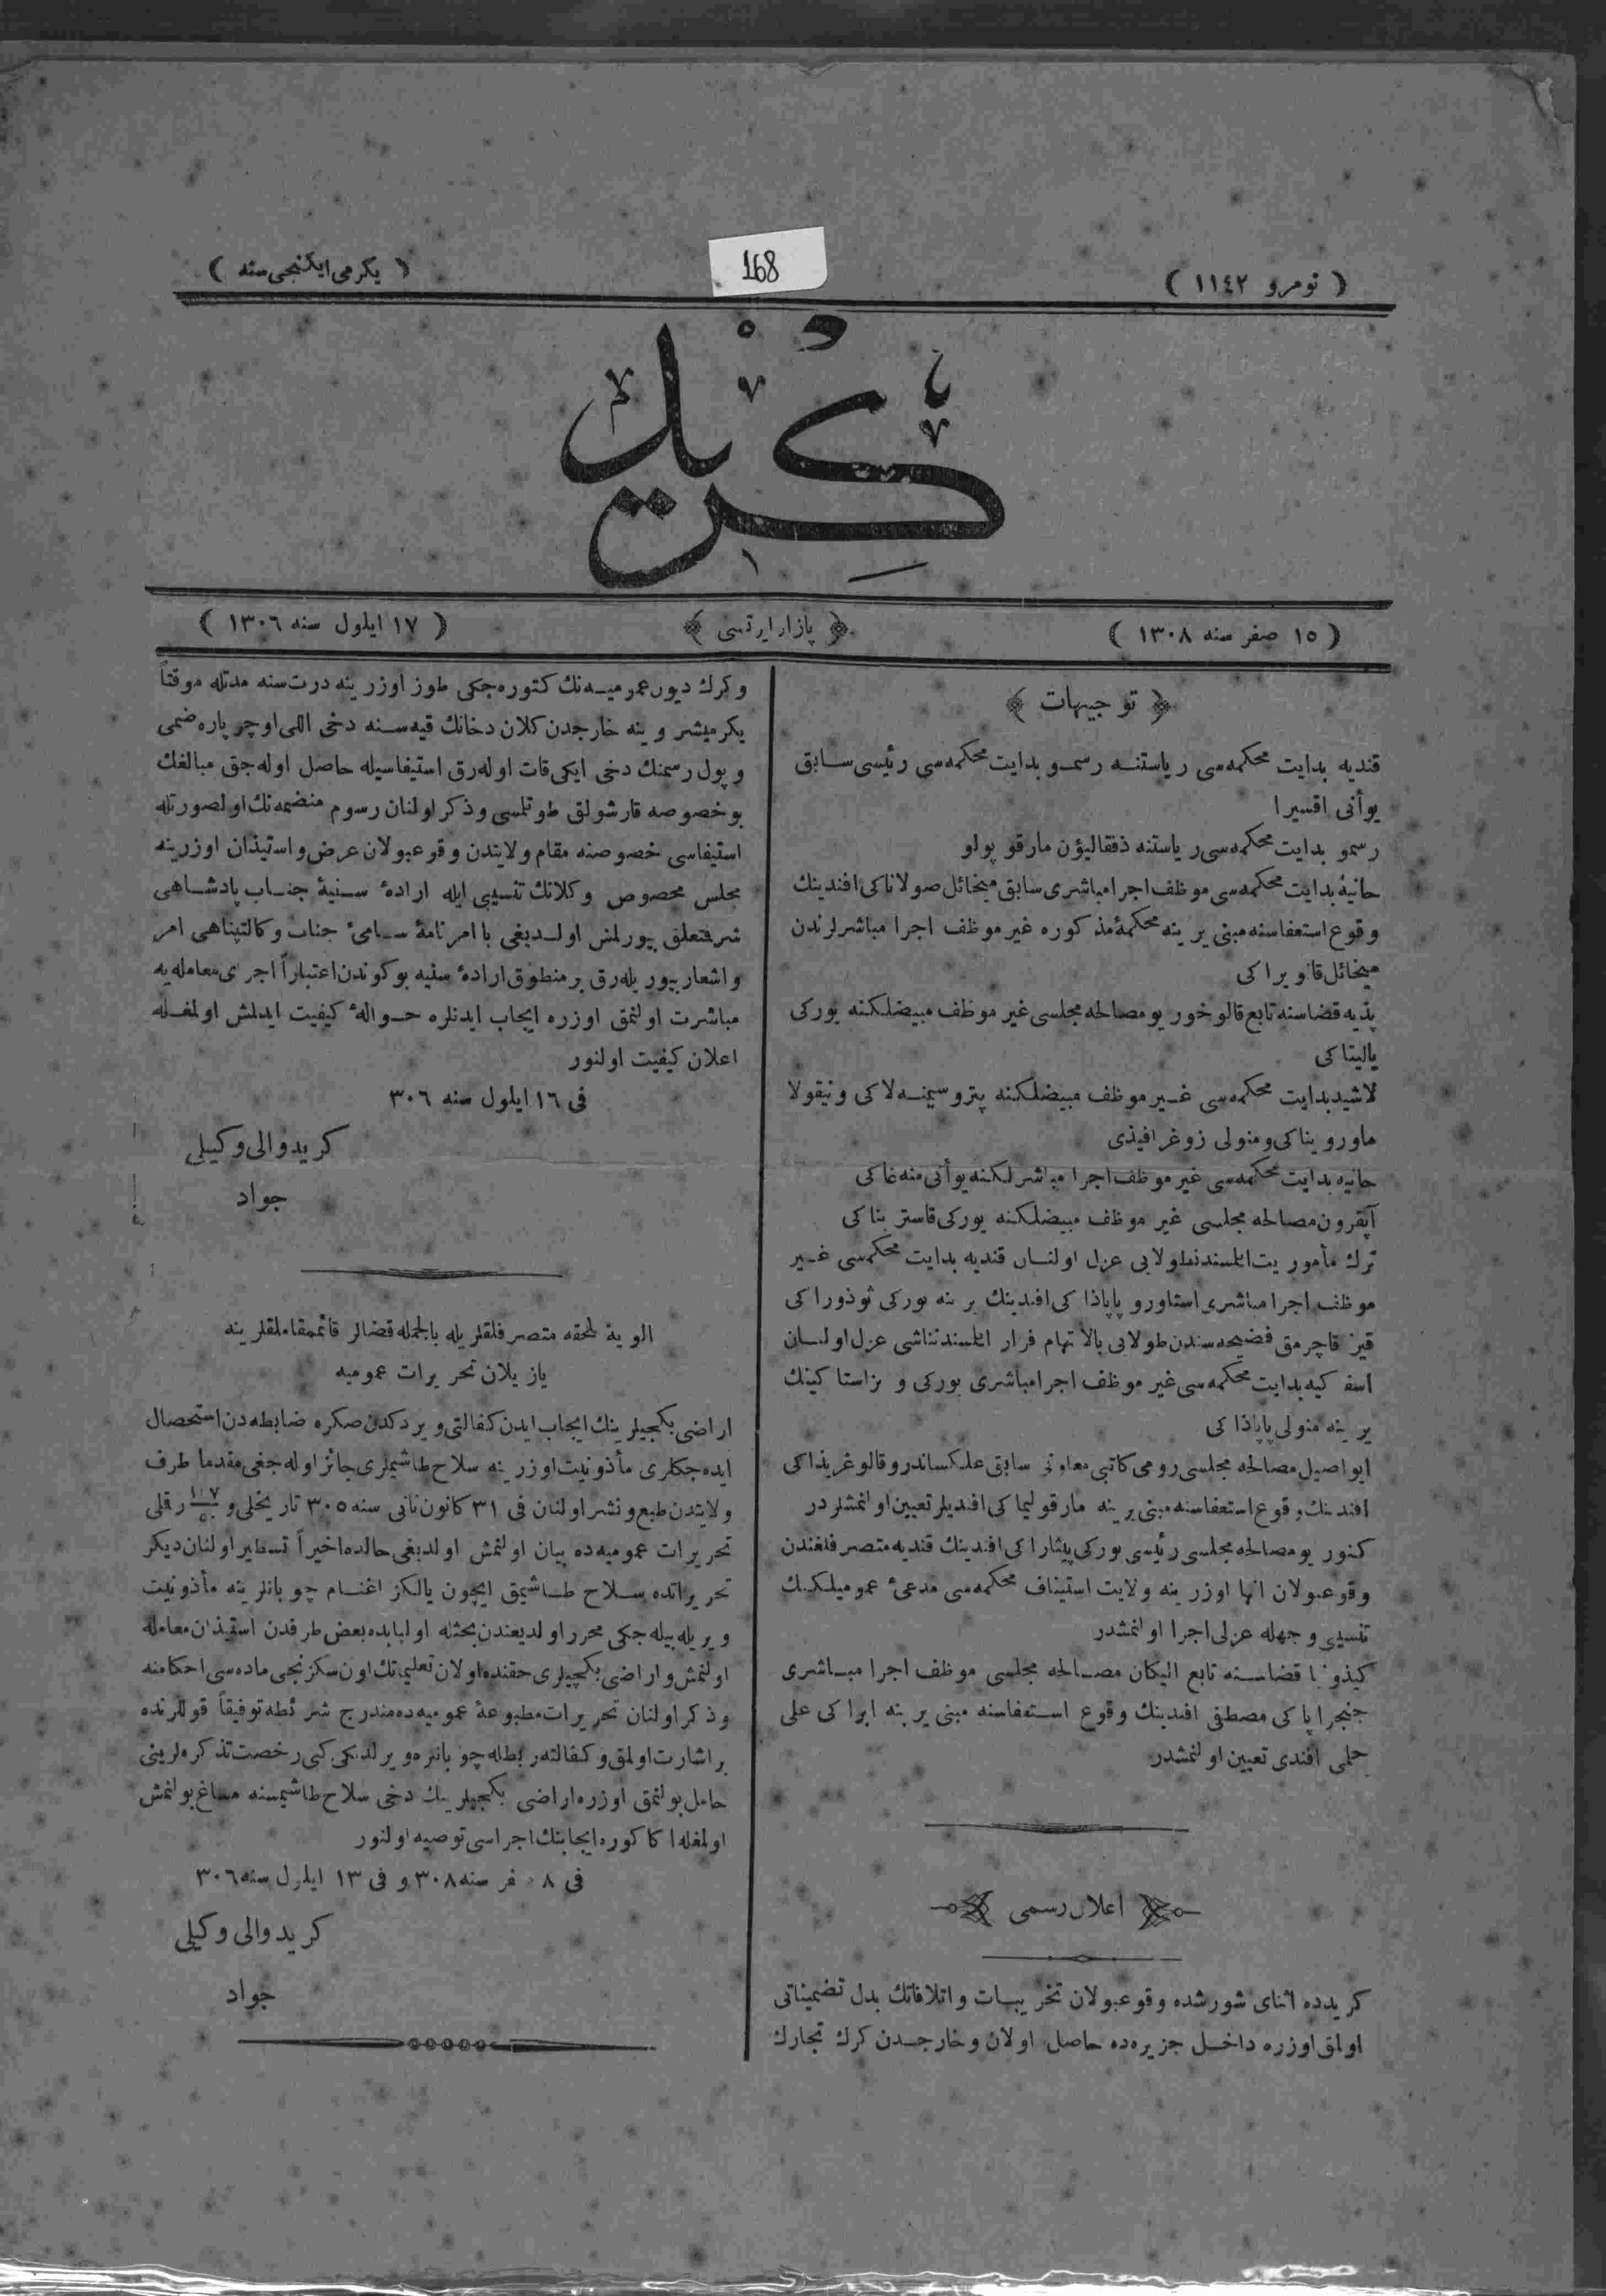 ( نومرو ١١٤٢ )
168
( يكرمى ايكنجى سنه )
كريد
( ١٥ صفر سنه ١٣٠٨ )
پازار ايرتسى
( ١٧ ايلول سنه ١٣٠٦ )
توجيهات
قنديه بدايت محكمه‌سى رياستنه رسمو بدايت محكمه‌سى رئيسى سابق
يوأنى اقسيرا
رسمو بدايت محكمه‌سى رياستنه ذفقاليؤن مارقوپولو
حانيهٔ بدايت محكمه‌سى موظف اجرا مباشرى سابق ميخائل صولاناكى افندينك
وقوع استعفاسنه مبنى يرينه محكمهٔ مذكوره غير موظف اجرا مباشرلرندن
ميخائل قانويراكى
پديه قضاسنه تابع قالوخوريو مصالحه مجلسى غير موظف مبيضلكنه يوركى
ياليتاكى
لاشيد بدايت محكمه‌سى غير موظف مبيضلكنه پترو سيمنه‌لاكى و نيقولا
ماوروپناكى و منولى زوغرافيذى
حانيه بدايت محكمه‌سى غير موظف اجرا مباشرلكنه يوأنى منه‌غاكى
آپقرون مصالحه مجلسى غير موظف مبيضلكنه يوركى قاستريناكى
ترك مأموريت ايلمسندن طولايى عزل اولنان قنديه بدايت محكمه‌سى غير
موظف اجرا مباشرى استاورو پاپاذاكى افندينك يرينه يوركى ثوذوراكى
قيز قاچرمق فضيحه‌سندن طولايى بالاتهام فرار ايلمسندن ناشى عزل اولنان
اسفاكيه بدايت محكمه‌سى غير موظف اجرا مباشرى يوركى وراستاكينك
يرينه منولى پاپاذاكى
ايواصيل مصالحه مجلسى رومى كاتبى معاونى سابق علكساندرو قالوغريذاكى
افندينك وقوع استعفاسنه مبنى يرينه مارقو ليماكى افنديلر تعيين اولنمشلردر
كنوريو مصالحه مجلسى رئيسى يوركى پيثاراكى افندينك قنديه متصرفلغندن
وقوعبولان انها اوزرينه ولايت استيناف محكمه‌سى مدعئ عموميلكنك
تنسيبى وجهله عزلى اجرا اولنمشدر
كيذونيا قضاسنه تابع اليكان مصالحه مجلسى موظف اجرا مباشرى
جنجراپاكى مصطفى افندينك وقوع استعفاسنه مبنى يرينه ابراكى على
حلمى افندى تعيين اولنمشدر
اعلان رسمى
كريدده اثناى شورشده وقوعبولان تخريبات و اتلافاتك بدل تضميناتى
اولمق اوزره داخل جزيره‌ده حاصل اولان و خارجدن كرك تجارك
و كرك ديون عموميه‌نك كتوره‌جكى طوز اوزرينه درت سنه مدتله موقتاً
يكرميشر و ينه خارجدن كلان دخانك قيه‌سنه دخى اللى اوچر پاره ضمى
و پول رسمنك دخى ايكى قات اوله‌رق استيفاسيله حاصل اوله‌جق مبالغك
بو خصوصه قارشولق طوتلمسى و ذكر اولنان رسوم منضمه‌نك اولصورتله
استيفاسى خصوصنه مقام ولايتدن وقوعبولان عرض و استيذان اوزرينه
مجلس مخصوص وكلانك تنسيبى ايله ارادهٔ سنيهٔ جناب پادشاهى
شرفتعلق بيورلمش اولديغى با امرنامهٔ سامئ جناب وكالتپناهى امر
و اشعار بيوريله‌رق بر منطوق ارادهٔ سنيه بو كوندن اعتباراً اجراى معامله‌يه
مباشرت اولنمق اوزره ايجاب ايدنلره حوالهٔ كيفيت ايدلمش اولمغله
اعلان كيفيت اولنور
فى ١٦ ايلول سنه ٣٠٦
كريد والى وكيلى
جواد
الويهٔ ملحقه متصرفلقلريله بالجمله قضالر قائممقاملقلرينه
يازيلان تحريرات عموميه
اراضى بكجيلرينك ايجاب ايدن كفالتى ويردكدن صكره ضابطه‌دن استحصال
ايده‌جكلرى مأذونيت اوزرينه سلاح طاشيملرى جائز اوله‌جغى مقدما طرف
ولايتدن طبع و نشر اولنان فى ٣١ كانون ثانى سنه ٣٠٥ تاريخلى و رقملى
تحريرات عموميه‌ده بيان اولنمش اولديغى حالده اخيراً تسطير اولنان ديكر
تحريراتده سلاح طاشيمق ايچون يالكز اغنام چوبانلرينه مأذونيت
ويريله بيله‌جكى محرر اولديغندن بحثله اولبابده بعض طرفدن استيذان معامله
اولنمش و اراضى بكچيلرى حقنده اولان تعليماتك اون سكزنجى ماده‌سى احكامنه
و ذكر اولنان تحريرات مطبوعهٔ عموميه‌ده مندرج شرائطه توفيقاً قوللرنده
بر اشارت اولمق و كفالته ربطله چوبانلره ويرلديكى كبى رخصت تذكره‌لرينى
حامل بولنمق اوزره اراضى بكجيلرينك دخى سلاح طاشيمسنه مساغ بولنمش
اولمغله اكا كوره ايجابنك اجراسى توصيه اولنور
فى ٨ صفر سنه ٣٠٨ و فى ١٣ ايلول سنه ٣٠٦
كريد والى وكيلى
جواد